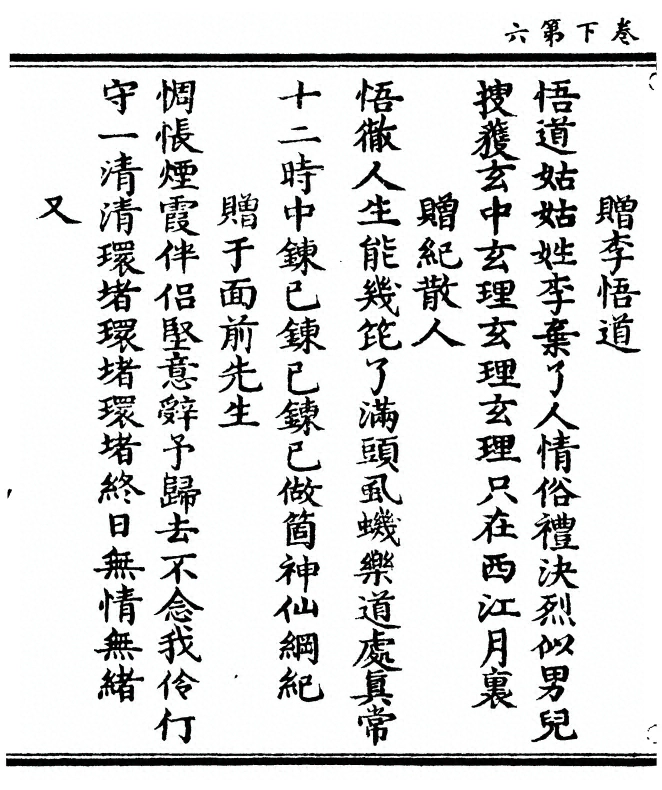 卷下第六
贈李悟道
悟道姑姑姓李棄了人情俗禮決烈似男兒
搜獲玄中玄理玄理玄理只在西江月裏
贈紀散人
悟徹人生能幾箆了滿頭虱蟣樂道處眞常
十二時中鍊己鍊己鍊己做箇神仙綱紀
贈于面前先生
惆悵煙霞伴侣堅意辭予歸去不念我伶仃
守一清清環堵環堵環堵終日無情無緒
又